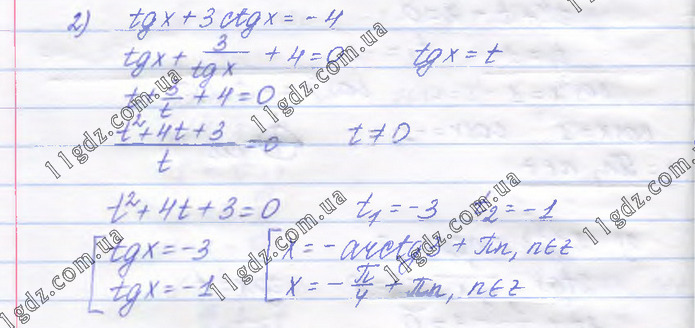 2) tgx + 3ctgx = -4
tgx + 3/tgx + 4 = 0 tgx = t
t + 3/t + 4 = 0
(t² + 4t + 3)/t = 0 t ≠ 0
t² + 4t + 3 = 0 t₁ = -3 t₂ = -1
[ tgx = -3 [ x = -arctg3 + πn, n∈z
tgx = -1 x = -π/4 + πn, n∈z
11gdz.com.ua
11gdz.com.ua
11gdz.com.ua
11gdz.com.ua
11gdz.com.ua
11gdz.com.ua
11gdz.com.ua
11gdz.com.ua